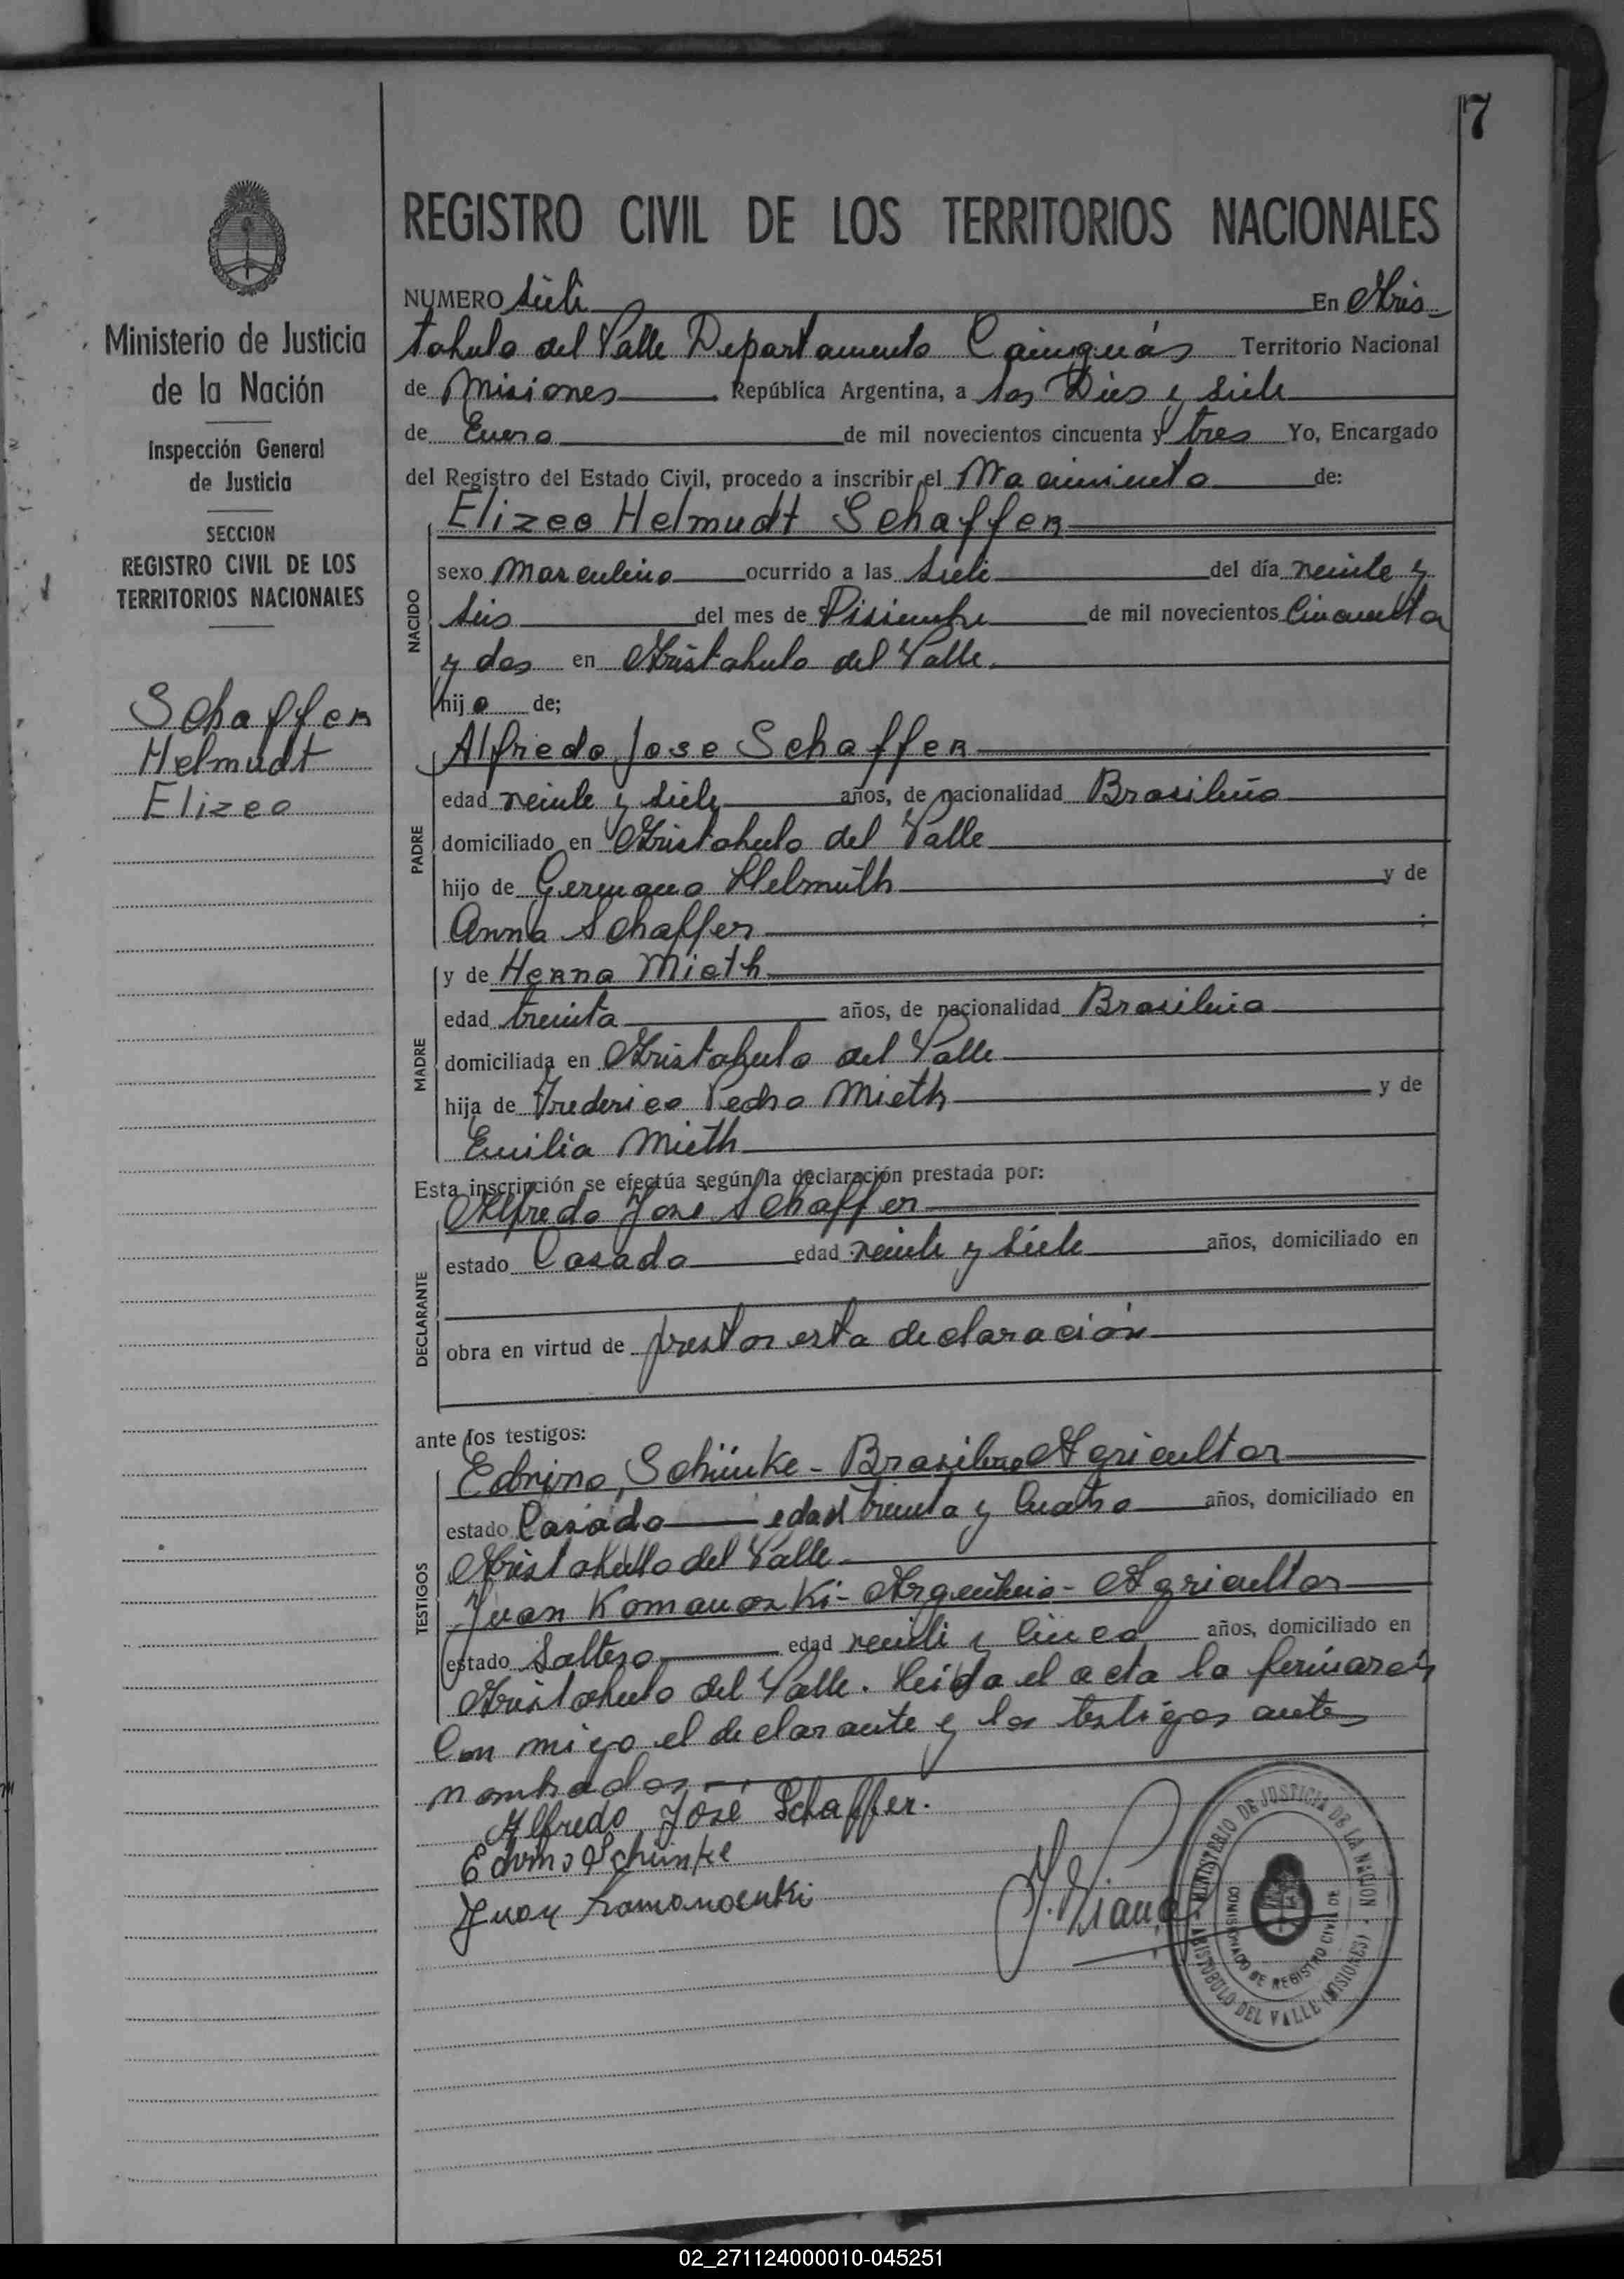 7
REGISTRO CIVIL DE LOS TERRITORIOS NACIONALES
Ministerio de Justicia
de la Nación
Inspección General
de Justicia
SECCION
REGISTRO CIVIL DE LOS
TERRITORIOS NACIONALES
Schaffer
Helmudt
Elizeo
NUMERO siete En Aris-
tobulo del Valle Departamento Cainguás Territorio Nacional
de Misiones República Argentina, a los Dies y siete
de Enero de mil novecientos cincuenta y tres Yo, Encargado
del Registro del Estado Civil, procedo a inscribir el Nacimiento de:
NACIDO
Elizeo Helmudt Schaffer
sexo Masculino ocurrido a las siete del día veinte y
seis del mes de Disiembre de mil novecientos Cincuenta
y dos en Aristobulo del Valle
hijo de;
PADRE
Alfredo Jose Schaffer
edad veinte y siete años, de nacionalidad Brasileño
domiciliado en Aristobulo del Valle
hijo de Germano Helmuth y de
Anna Schaffer
MADRE
y de Herna Mieth
edad treinta años, de nacionalidad Brasileña
domiciliada en Aristobulo del Valle
hija de Frederico Pedro Mieth y de
Emilia Mieth
Esta inscripción se efectúa según la declaración prestada por:
DECLARANTE
Alfredo José Schaffer
estado Casado edad veinte y siete años, domiciliado en
obra en virtud de prestar esta declaración
ante los testigos:
TESTIGOS
Edvino Schünke - Brasileño Agricultor
estado Casado edad treinta y Cuatro años, domiciliado en
Aristobulo del Valle
Juan Komanozki - Argentino - Agricultor
estado Soltero edad veinte y cinco años, domiciliado en
Aristobulo del Valle. Leida el acta la firmaron
Con migo el declarante y los testigos antes
nombrados
Alfredo José Schaffer.
Edvino Schünke
Juan
J. Viana
MINISTERIO DE JUSTICIA DE LA NACION
COMISIONADO DE REGISTRO CIVIL DE
ARISTOBULO DEL VALLE (MISIONES)
02_271124000010-045251